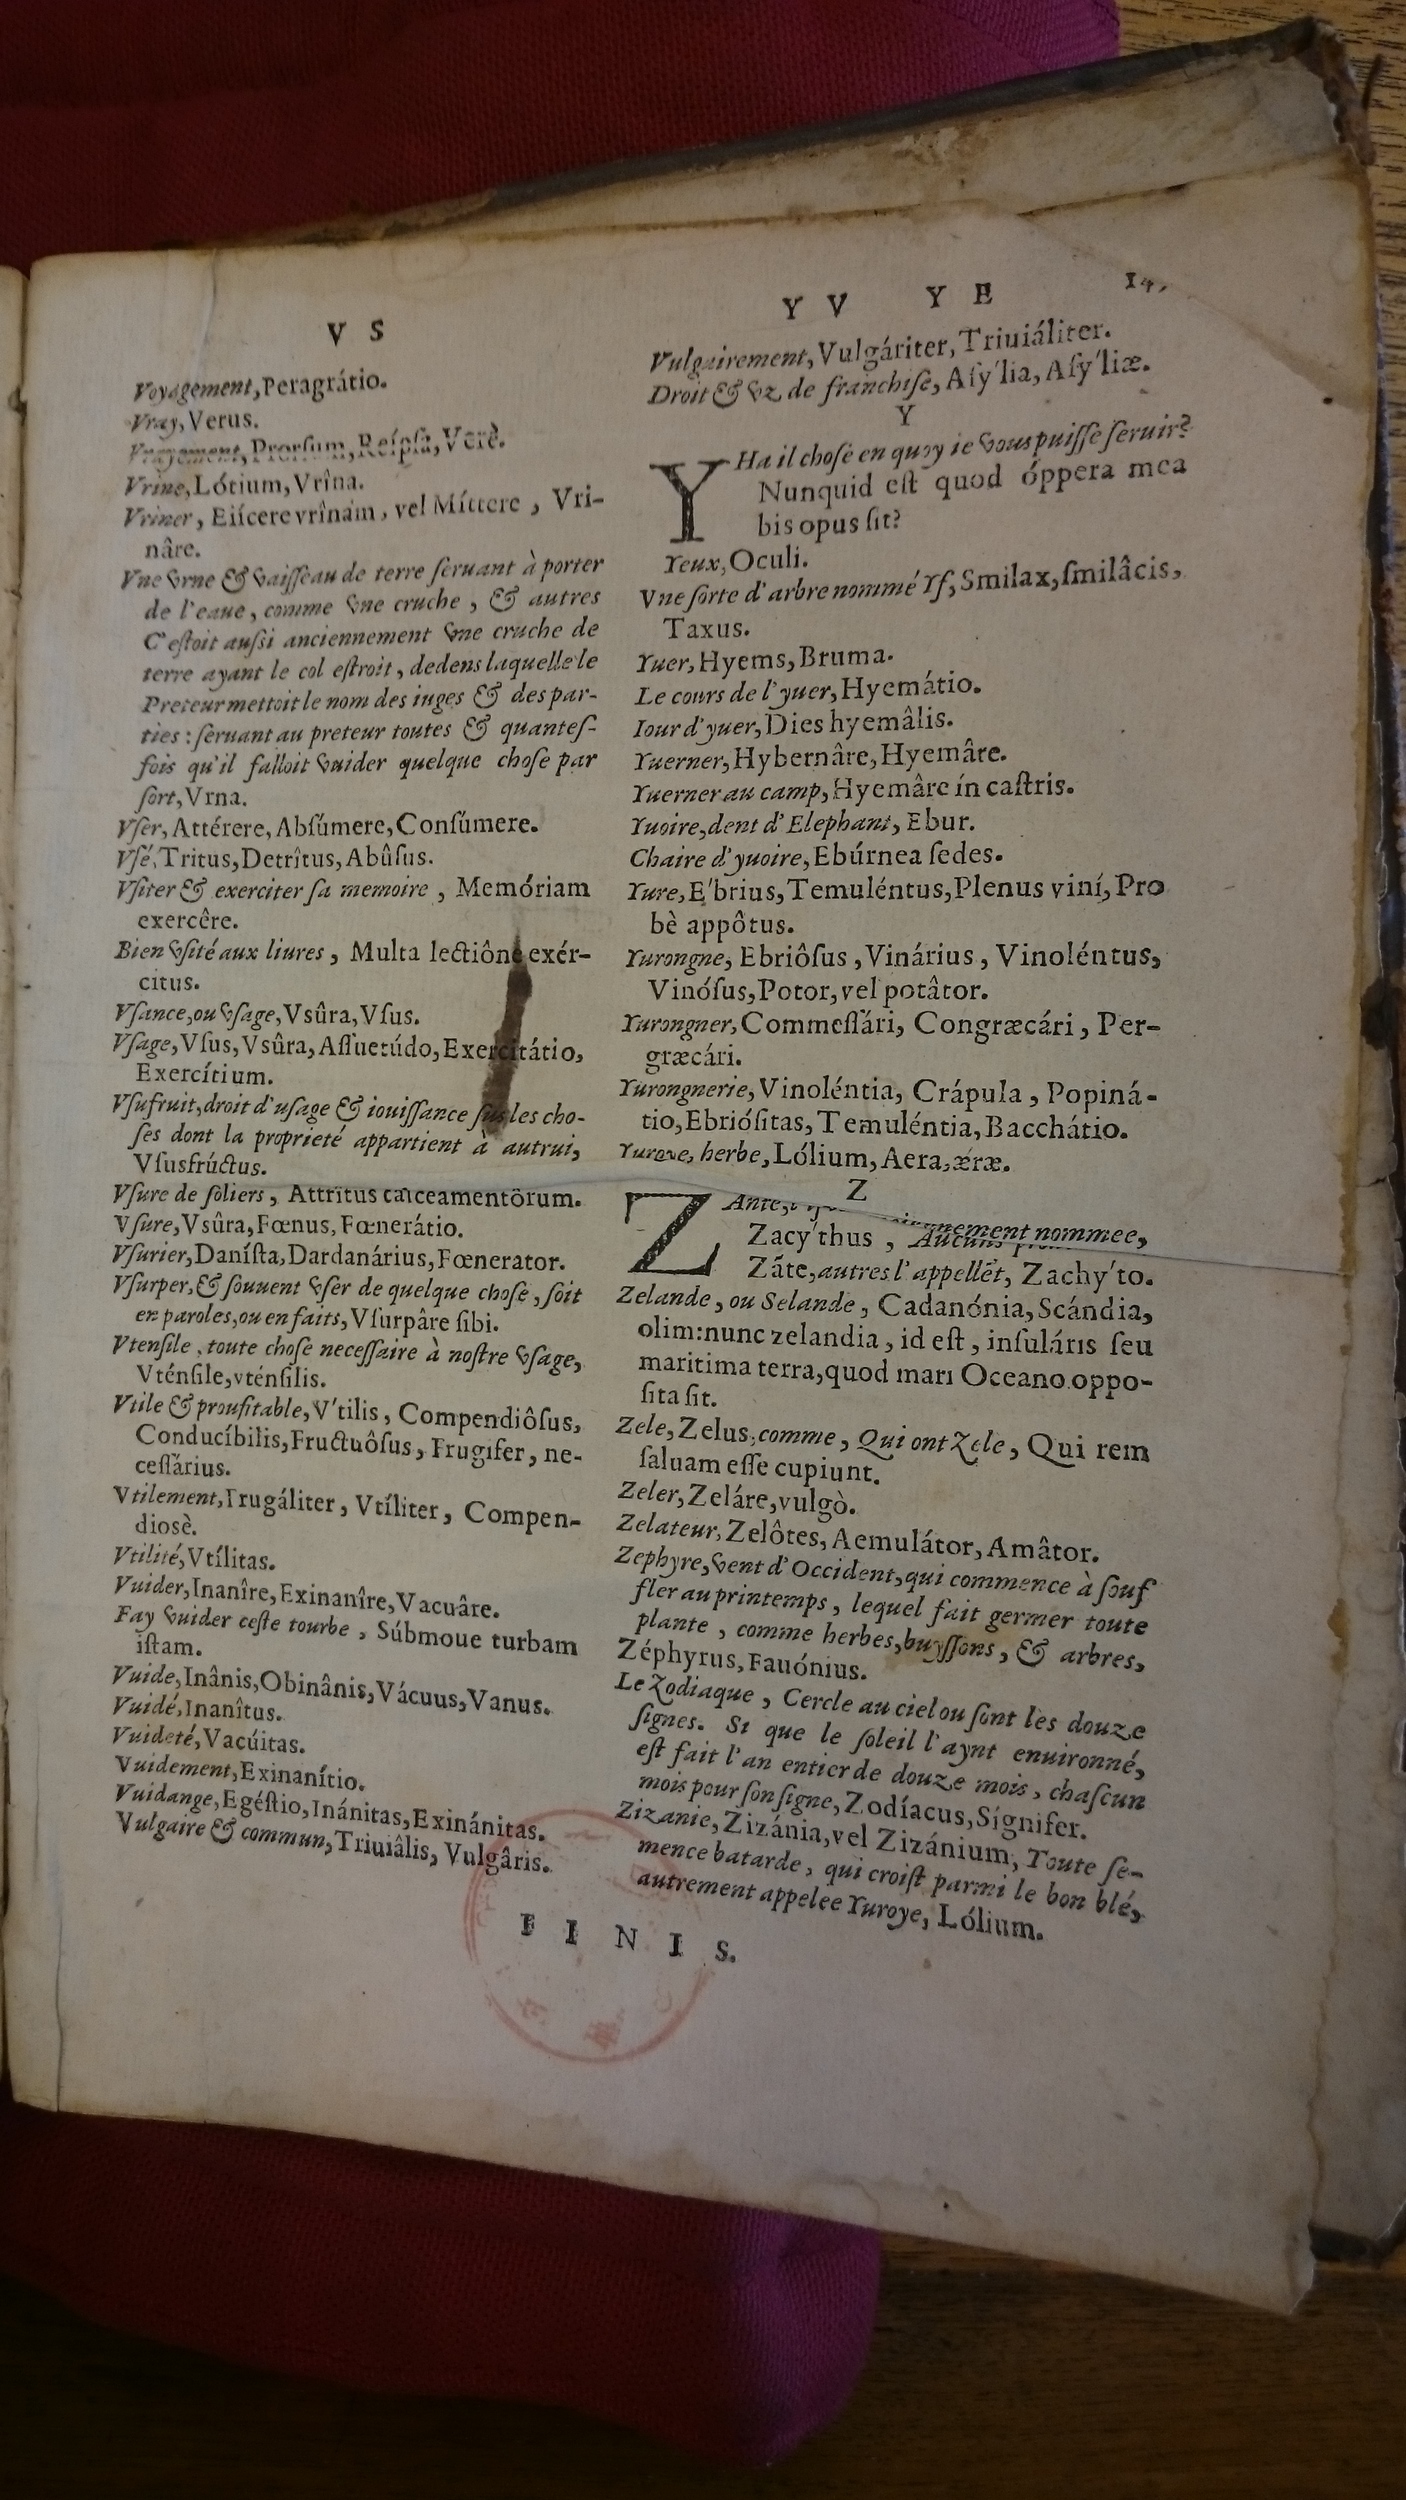 V S
Voyagement, Peragrátio.
Vray, Verus.
Vrayement, Prorſum, Reípſa, Verè.
Vrine, Lótium, Vrîna.
Vriner, Eiícere vrînam, vel Míttere, Vri-
nâre.
Vne vrne & vaiſſeau de terre ſeruant à porter
de l'eaue, comme vne cruche, & autres
C'eſtoit auſsi anciennement vne cruche de
terre ayant le col eſtroit, dedens laquelle le
Preteur mettoit le nom des iuges & des par-
ties: ſeruant au preteur toutes & quanteſ-
fois qu'il falloit vuider quelque choſe par
ſort, Vrna.
Vſer, Attérere, Abſúmere, Conſúmere.
Vſé, Tritus, Detrîtus, Abûſus.
Vſiter & exerciter ſa memoire, Memóriam
exercêre.
Bien vſité aux liures, Multa lectiône exér-
citus.
Vſance, ou vſage, Vsûra, Vſus.
Vſage, Vſus, Vsûra, Aſſuetúdo, Exercitátio,
Exercítium.
Vſufruit, droit d'uſage & iouiſſance ſus les cho-
ſes dont la proprieté appartient à autrui,
Vſusfrúctus.
Vſure de ſoliers, Attrîtus calceamentôrum.
Vſure, Vsûra, Fœnus, Fœnerátio.
Vſurier, Daníſta, Dardanárius, Fœnerator.
Vſurper, & ſouuent vſer de quelque choſe, ſoit
en paroles, ou en faits, Vſurpâre ſibi.
Vtenſile, toute choſe neceſſaire à noſtre vſage,
Vténſile, vténſilis.
Vtile & proufitable, V'tilis, Compendiôſus,
Conducíbilis, Fructuôſus, Frugifer, ne-
ceſſárius.
Vtilement, Frugáliter, Vtíliter, Compen-
diosè.
Vtilité, Vtílitas.
Vuider, Inanîre, Exinanîre, Vacuâre.
Fay vuider ceſte tourbe, Súbmoue turbam
iſtam.
Vuide, Inânis, Obinânis, Vácuus, Vanus.
Vuidé, Inanîtus.
Vuideté, Vacúitas.
Vuidement, Exinanítio.
Vuidange, Egéſtio, Inánitas, Exinánitas.
Vulgaire & commun, Triuiâlis, Vulgâris.
Y V Y E
Vulgairement, Vulgáriter, Triuiáliter.
Droit & vz de franchiſe, Aſy'lia, Aſy'liæ.
Y
Y Ha il choſe en quoy ie vous puiſſe ſeruir?
Nunquid eſt quod óppera mea
bis opus ſit?
Yeux, Oculi.
Vne ſorte d'arbre nommé Yf, Smilax, ſmilâcis,
Taxus.
Yuer, Hyems, Bruma.
Le cours de l'yuer, Hyemátio.
Iour d'yuer, Dies hyemâlis.
Yuerner, Hybernâre, Hyemâre.
Yuerner au camp, Hyemâre ín caſtris.
Yuoire, dent d'Elephant, Ebur.
Chaire d'yuoire, Ebúrnea ſedes.
Yure, E'brius, Temuléntus, Plenus viní, Pro
bè appôtus.
Yurongne, Ebriôſus, Vinárius, Vinoléntus,
Vinóſus, Potor, vel potâtor.
Yurongner, Commeſſári, Congræcári, Per-
græcári.
Yurongnerie, Vinoléntia, Crápula, Popiná-
tio, Ebrióſitas, Temuléntia, Bacchátio.
Yuroye, herbe, Lólium, Aera, æræ.
Z
Zante, nement nommee,
Zacy'thus, Aucuns
Zāte, autres l'appellēt, Zachy'to.
Zelande, ou Selande, Cadanónia, Scándia,
olim: nunc zelandia, id eſt, inſuláris ſeu
maritima terra, quod mari Oceano oppo-
ſita ſit.
Zele, Zelus, comme, Qui ont Zele, Qui rem
ſaluam eſſe cupiunt.
Zeler, Zeláre, vulgò.
Zelateur, Zelôtes, Aemulátor, Amâtor.
Zephyre, vent d'Occident, qui commence à ſouf
fler au printemps, lequel fait germer toute
plante, comme herbes, buyſſons, & arbres,
Zéphyrus, Fauónius.
Le Zodiaque, Cercle au ciel ou ſont les douze
ſignes. Si que le ſoleil l'aynt enuironné,
eſt fait l'an entier de douze mois, chaſcun
mois pour ſon ſigne, Zodíacus, Sígnifer.
Zizanie, Zizánia, vel Zizánium, Toute ſe-
mence batarde, qui croiſt parmi le bon blé,
autrement appelee Yuroye, Lólium.
F I N I S.